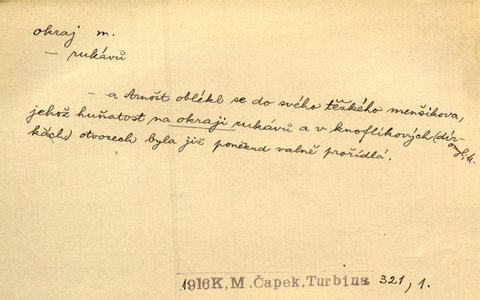 okraj m.
— rukávů
— a Arnošt oblékl se do svého těžkého menšikova,
jehož huňatost na okraji rukávů a v knoflíkových (dír-
kách) otvorech byla již poněkud valně prořídlá.
1916 K, M. Čapek, Turbina 321, 1.